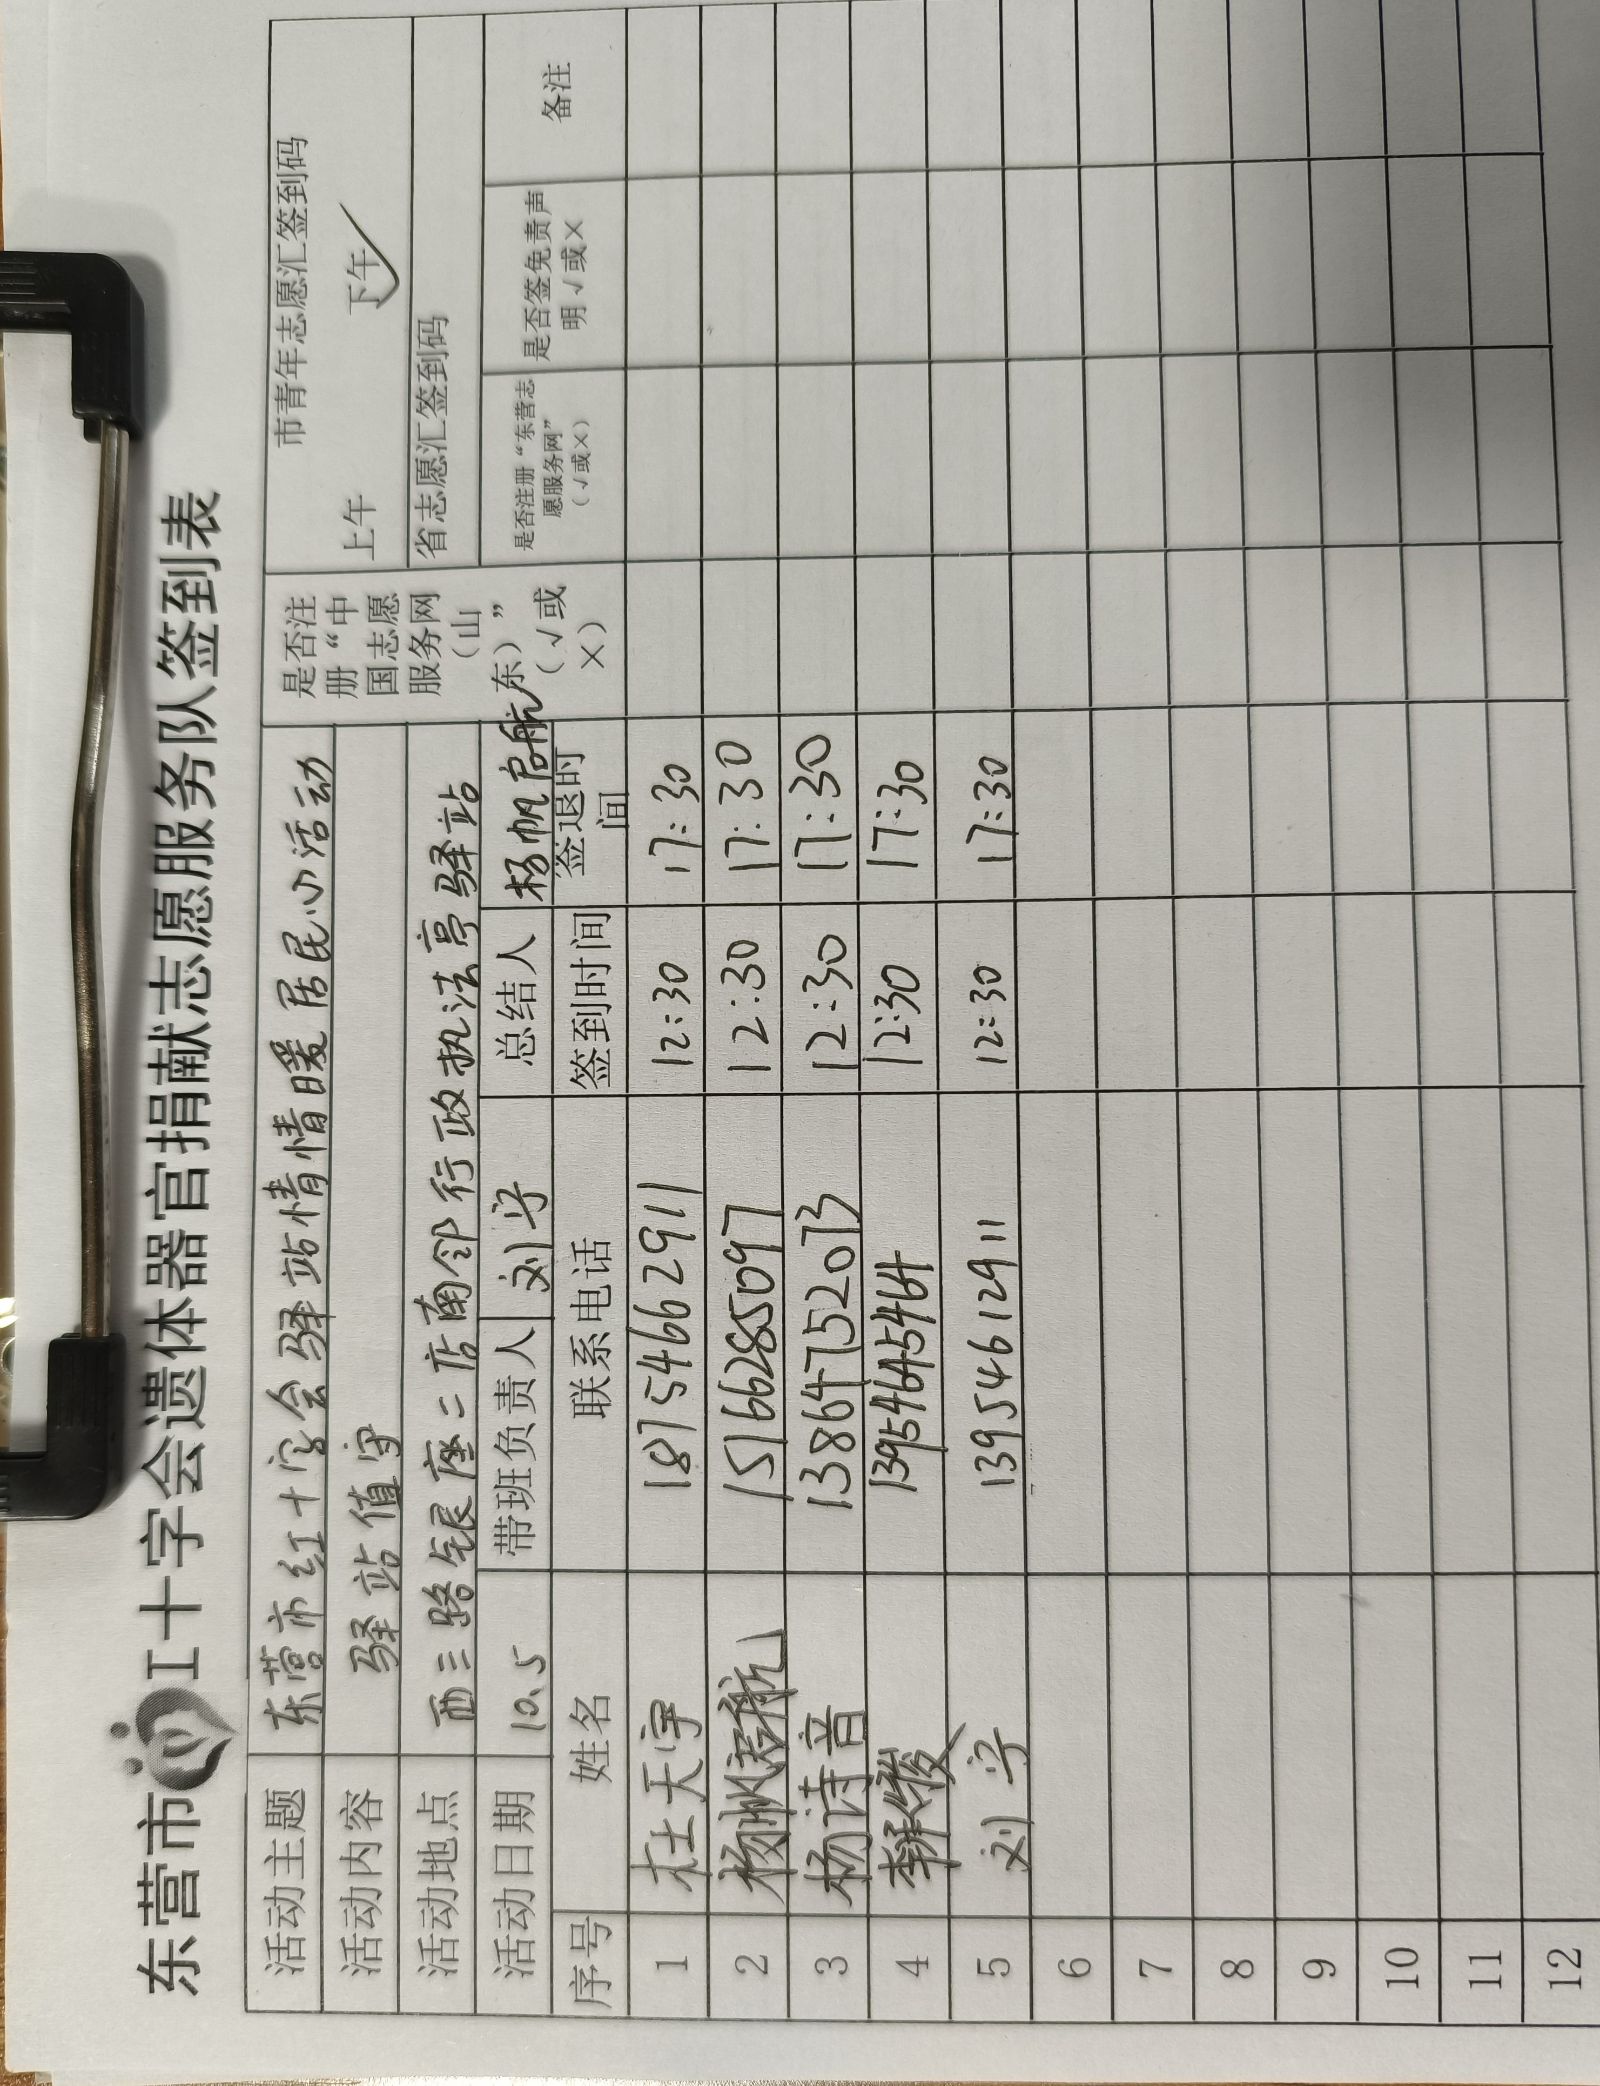 东营市工十字会遗体器官捐献志愿服务队签到表
活动主题 东营市红十字会驿站情情暖居民小活动 是否注册“中国志愿服务网（山东）”（√或×） 市青年志愿汇签到码
活动内容 驿站值守 上午 下午 √
活动地点 西三路银座二店南邻行政执法亭驿站 省志愿汇签到码
活动日期 10.5 带班负责人 刘宁 总结人 杨帆启航
序号 姓名 联系电话 签到时间 签退时间 是否注册“东营志愿服务网”（√或×） 是否签免责声明√或× 备注
1 杜天宇 18754662911 12:30 17:30
2 杨帆启航 15166285097 12:30 17:30
3 杨诗音 13864752073 12:30 17:30
4 13954645464 12:30 17:30
5 刘宁 13954612911 12:30 17:30
6
7
8
9
10
11
12